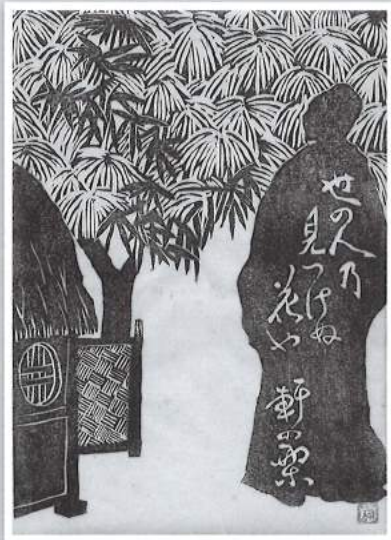 世の人乃
見つけぬ
花や
軒の栗